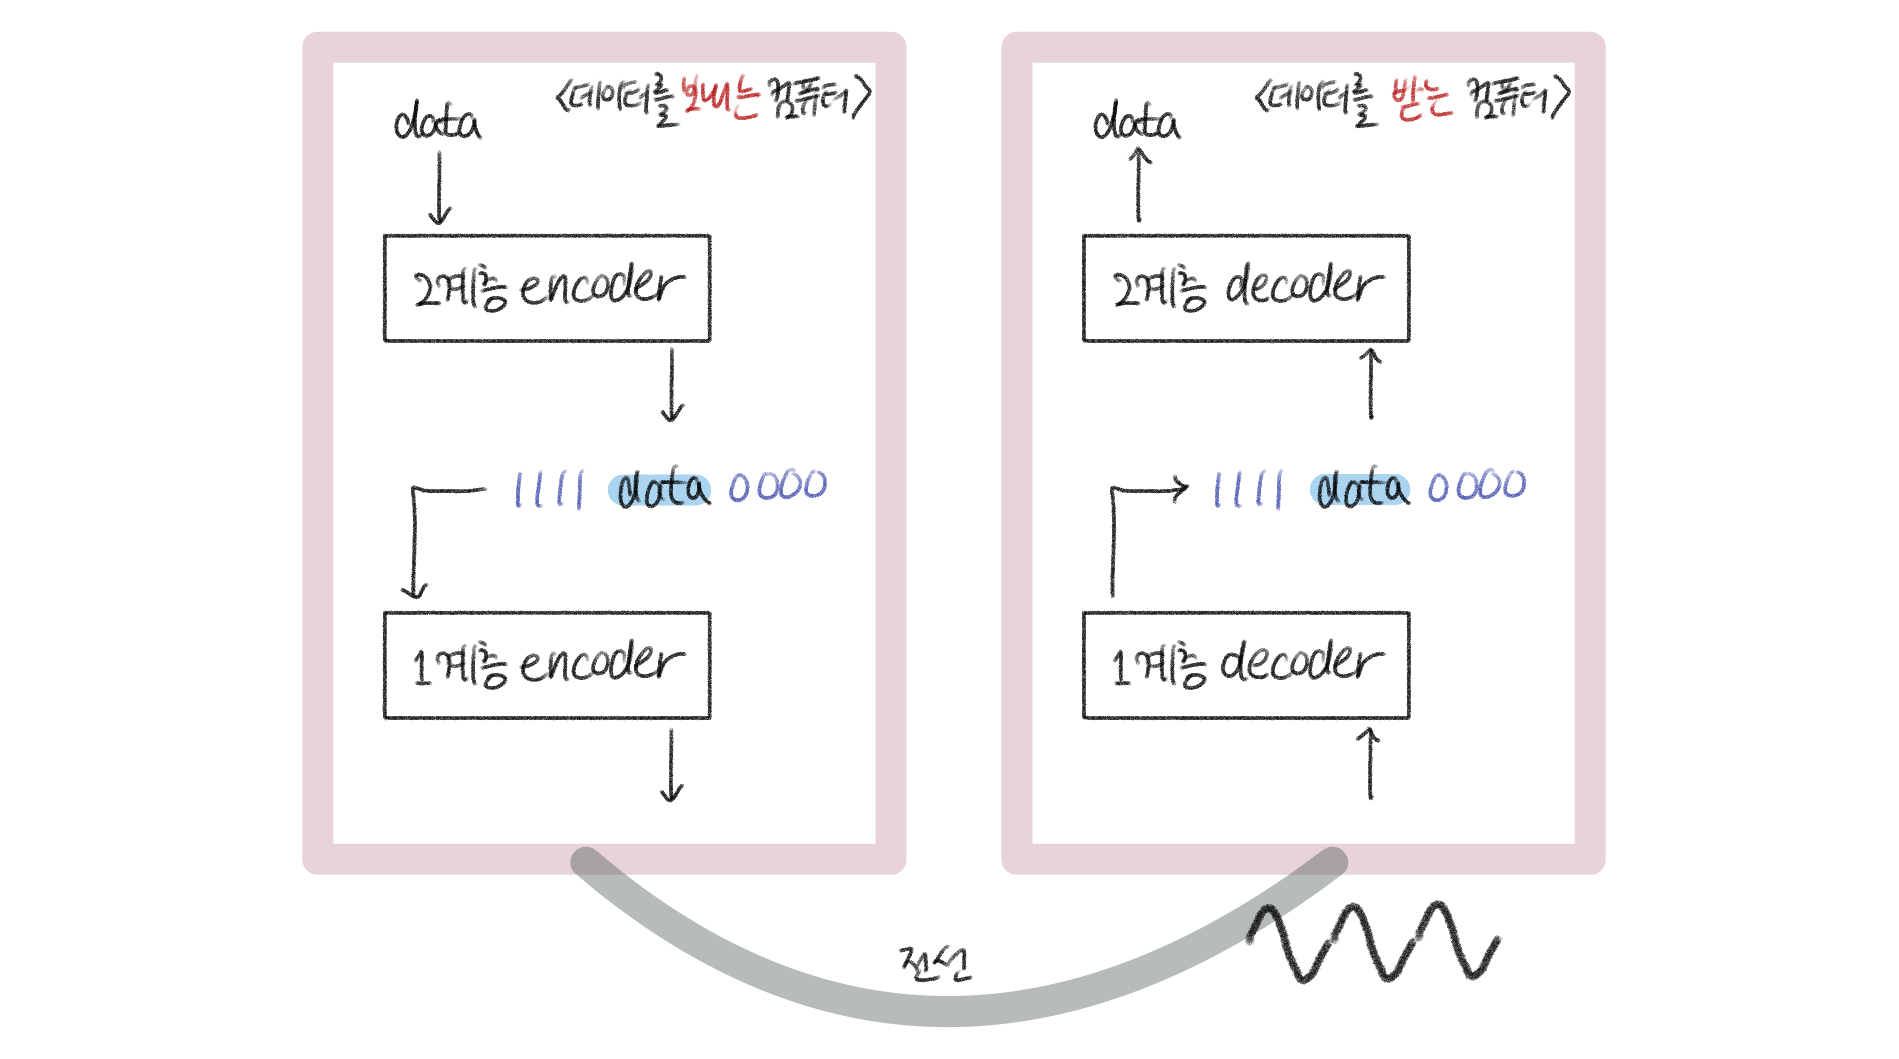 <데이터를 보내는 컴퓨터>
data
2계층 encoder
1111 data 0000
1계층 encoder
<데이터를 받는 컴퓨터>
data
2계층 decoder
1111 data 0000
1계층 decoder
전선